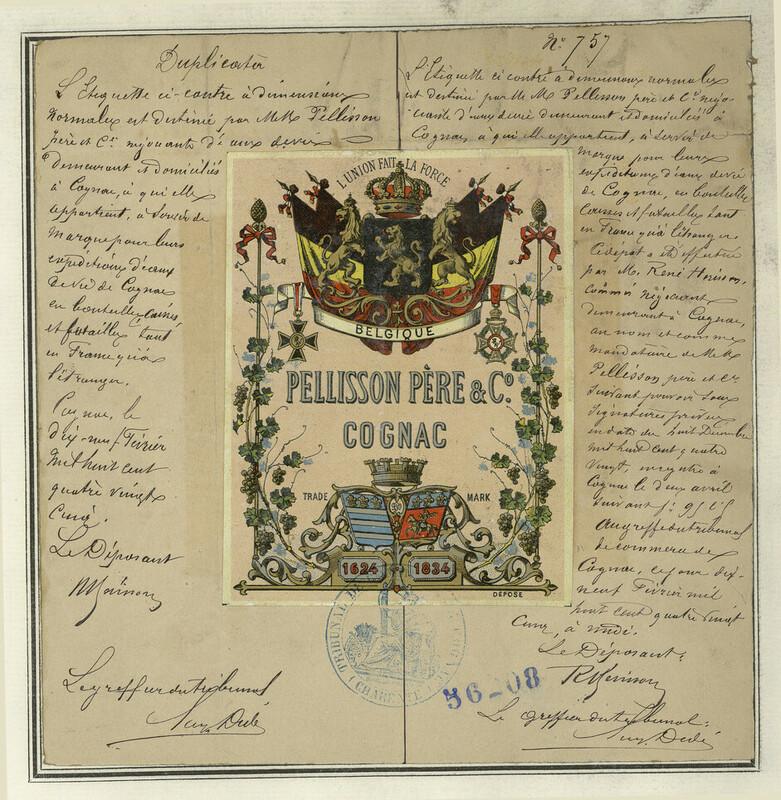 Duplicata
L'Etiquette ci-contre à dimensions
Normales est destinée par MM Pellisson
père et Cie négociants d'eaux de vie
Demeurant et domiciliés
à Cognac, à qui elle
appartient, à servir de
Marque pour leurs
expéditions d'eaux
de vie de Cognac
en bouteilles, caisses
et futailles tant
en France qu'à
l'étranger.
Cognac, le
dix-neuf Février
mil huit cent
quatre vingt
cinq.
Le Déposant
Le greffier du tribunal
No 757
L'Etiquette ci contre à dimensions normales
est destinée par MM Pellisson père et Cie négo-
ciants d'eaux de vie demeurant et domiciliés à
Cognac, à qui elle appartient, à servir de
marque pour leurs
expéditions d'eaux de vie
de Cognac, en bouteilles
caisses et futailles tant
en France qu'à l'étranger
Ce dépot a été effectué
par M. René
négociant
demeurant à Cognac,
au nom et comme
mandataire de MM
Pellisson père et Cie
suivant pouvoir sous
signatures privées
en date du huit Décembre
mil huit cent quatre
vingt, enregistré à
Cognac le deux avril
suivant
Au greffe du tribunal
de commerce de
Cognac, ce jour dix
neuf Février mil
huit cent quatre vingt
cinq, à midi.
Le Déposant:
Le greffier du tribunal:
L'UNION FAIT LA FORCE
BELGIQUE
PELLISSON PÈRE & Co.
COGNAC
TRADE MARK
1624 1834
DÉPOSÉ
TRIBUNAL DE
(CHARENTE)
56-08